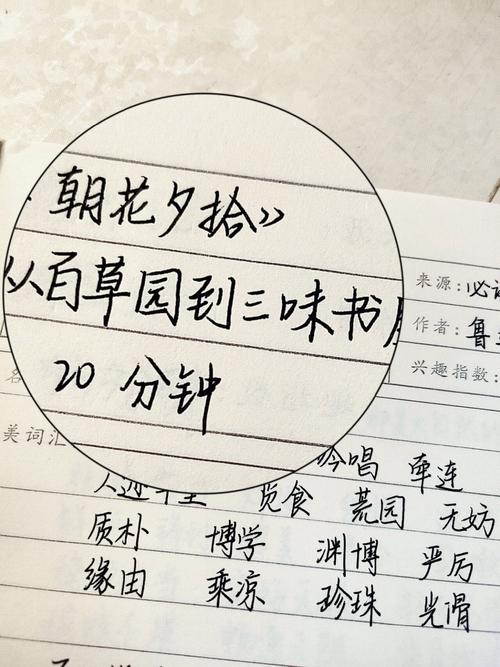 朝花夕拾》
从百草园到三味书
20 分钟
来源:必
作者:鲁
兴趣指数:
名
美词汇
吟唱 牵连
人迹罕至 觅食 荒园 无妨
质朴 博学 渊博 严厉
缘由 乘凉 珍珠 光滑